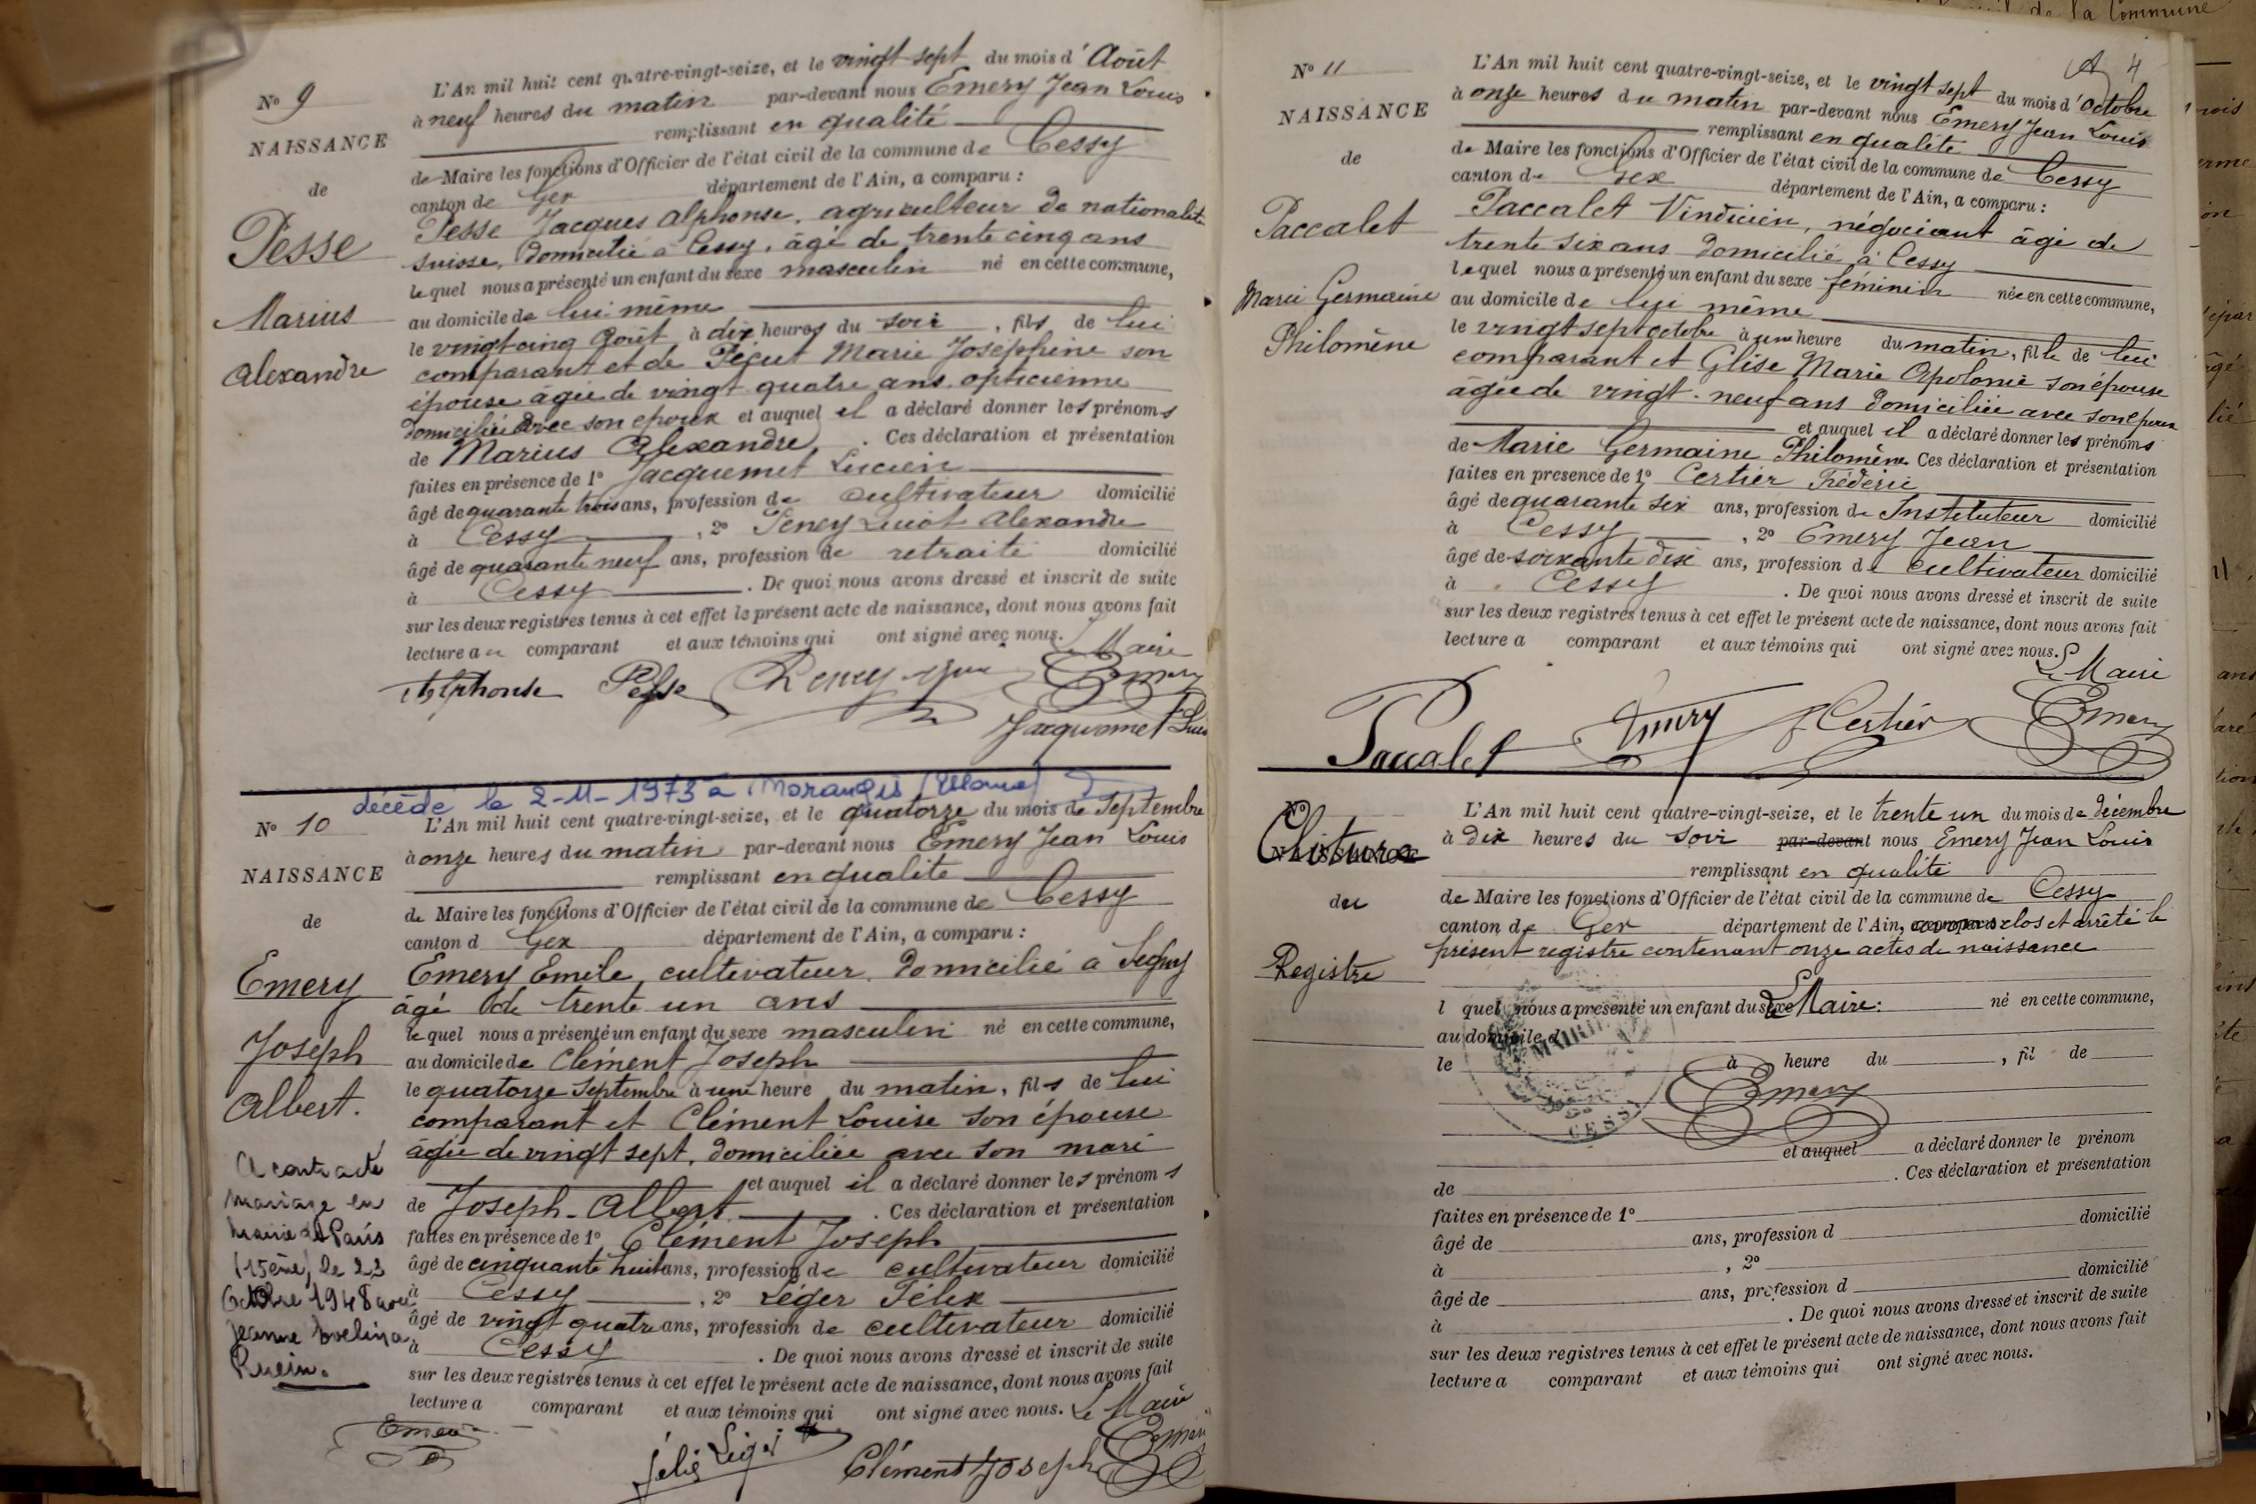 N° 9
NAISSANCE
de
Pesse
Marius
Alexandre
L'An mil huit cent quatre-vingt-seize, et le vingt sept du mois d'Août
à neuf heures du matin par-devant nous Emery Jean Louis
remplissant en qualité
de Maire les fonctions d'Officier de l'état civil de la commune de Cessy
canton de Gex département de l'Ain, a comparu :
Pesse Jacques Alphonse, agriculteur de nationalité
suisse, domicilié à Cessy, âgé de trente cinq ans
lequel nous a présenté un enfant du sexe masculin né en cette commune,
au domicile de lui même
le vingt-cinq Août à dix heures du soir, fils de lui
comparant et de Péçut Marie Joséphine son
épouse âgée de vingt quatre ans opticienne
domiciliée avec son époux et auquel il a déclaré donner les prénoms
de Marius Alexandre. Ces déclaration et présentation
faites en présence de 1° Jacquemet Lucien
âgé de quarante trois ans, profession de cultivateur domicilié
à Cessy, 2° Alexandre
âgé de quarante neuf ans, profession de retraité domicilié
à Cessy. De quoi nous avons dressé et inscrit de suite
sur les deux registres tenus à cet effet le présent acte de naissance, dont nous avons fait
lecture au comparant et aux témoins qui ont signé avec nous. Le Maire
Alphonse Pesse Emery
Jacquemet
décédé le 2-11-1973 à Morangis
N° 10
NAISSANCE
de
Emery
Joseph
Albert.
A contracté
mariage en
mairie de Paris
(15ème) le 23
Octobre 1948 avec
Jeanne Evelina
L'An mil huit cent quatre-vingt-seize, et le quatorze du mois de Septembre
à onze heures du matin par-devant nous Emery Jean Louis
remplissant en qualité
de Maire les fonctions d'Officier de l'état civil de la commune de Cessy
canton d Gex département de l'Ain, a comparu :
Emery Emile, cultivateur domicilié à Segny
âgé de trente un ans
lequel nous a présenté un enfant du sexe masculin né en cette commune,
au domicile de Clément Joseph
le quatorze Septembre à une heure du matin, fils de lui
comparant et Clément Louise son épouse
âgée de vingt sept, domiciliée avec son mari
et auquel il a déclaré donner les prénoms
de Joseph-Albert. Ces déclaration et présentation
faites en présence de 1° Clément Joseph
âgé de cinquante huit ans, profession de cultivateur domicilié
à Cessy, 2° Léger Félix
âgé de vingt quatre ans, profession de cultivateur domicilié
à Cessy. De quoi nous avons dressé et inscrit de suite
sur les deux registres tenus à cet effet le présent acte de naissance, dont nous avons fait
lecture a comparant et aux témoins qui ont signé avec nous. Le Maire
Emery
Félix Léger Clément Joseph Emery
4
N° 11
NAISSANCE
de
Paccalet
Marie Germaine
Philomène
L'An mil huit cent quatre-vingt-seize, et le vingt sept du mois d'Octobre
à onze heures du matin par-devant nous Emery Jean Louis
remplissant en qualité
de Maire les fonctions d'Officier de l'état civil de la commune de Cessy
canton de Gex département de l'Ain, a comparu :
Paccalet Vindicien, négociant âgé de
trente six ans domicilié à Cessy
lequel nous a présenté un enfant du sexe féminin née en cette commune,
au domicile de lui même
le vingt sept octobre à une heure du matin, fille de lui
comparant et Glise Marie Apolonie son épouse
âgée de vingt-neuf ans domiciliée avec son époux
et auquel il a déclaré donner les prénoms
de Marie Germaine Philomène. Ces déclaration et présentation
faites en presence de 1° Certier Frédéric
âgé de quarante six ans, profession de Instituteur domicilié
à Cessy, 2° Emery Jean
âgé de soixante dix ans, profession de cultivateur domicilié
à Cessy. De quoi nous avons dressé et inscrit de suite
sur les deux registres tenus à cet effet le présent acte de naissance, dont nous avons fait
lecture a comparant et aux témoins qui ont signé avec nous. Le Maire
Paccalet Emery F Certier Emery
N°
Cloture
NAISSANCE
du
Registre
L'An mil huit cent quatre-vingt-seize, et le trente un du mois de décembre
à dix heures du soir par-devant nous Emery Jean Louis
remplissant en qualité
de Maire les fonctions d'Officier de l'état civil de la commune de Cessy
canton de Gex département de l'Ain, a comparu clos et arrêté le
présent registre contenant onze actes de naissance
l quel nous a présenté un enfant du sexe Le Maire: né en cette commune,
au domicile d
MAIRIE
CESSY
le à heure du , fil de
Emery
et auquel a déclaré donner le prénom
de . Ces déclaration et présentation
faites en présence de 1°
âgé de ans, profession d domicilié
à , 2°
âgé de ans, profession d domicilié
à . De quoi nous avons dressé et inscrit de suite
sur les deux registres tenus à cet effet le présent acte de naissance, dont nous avons fait
lecture a comparant et aux témoins qui ont signé avec nous.